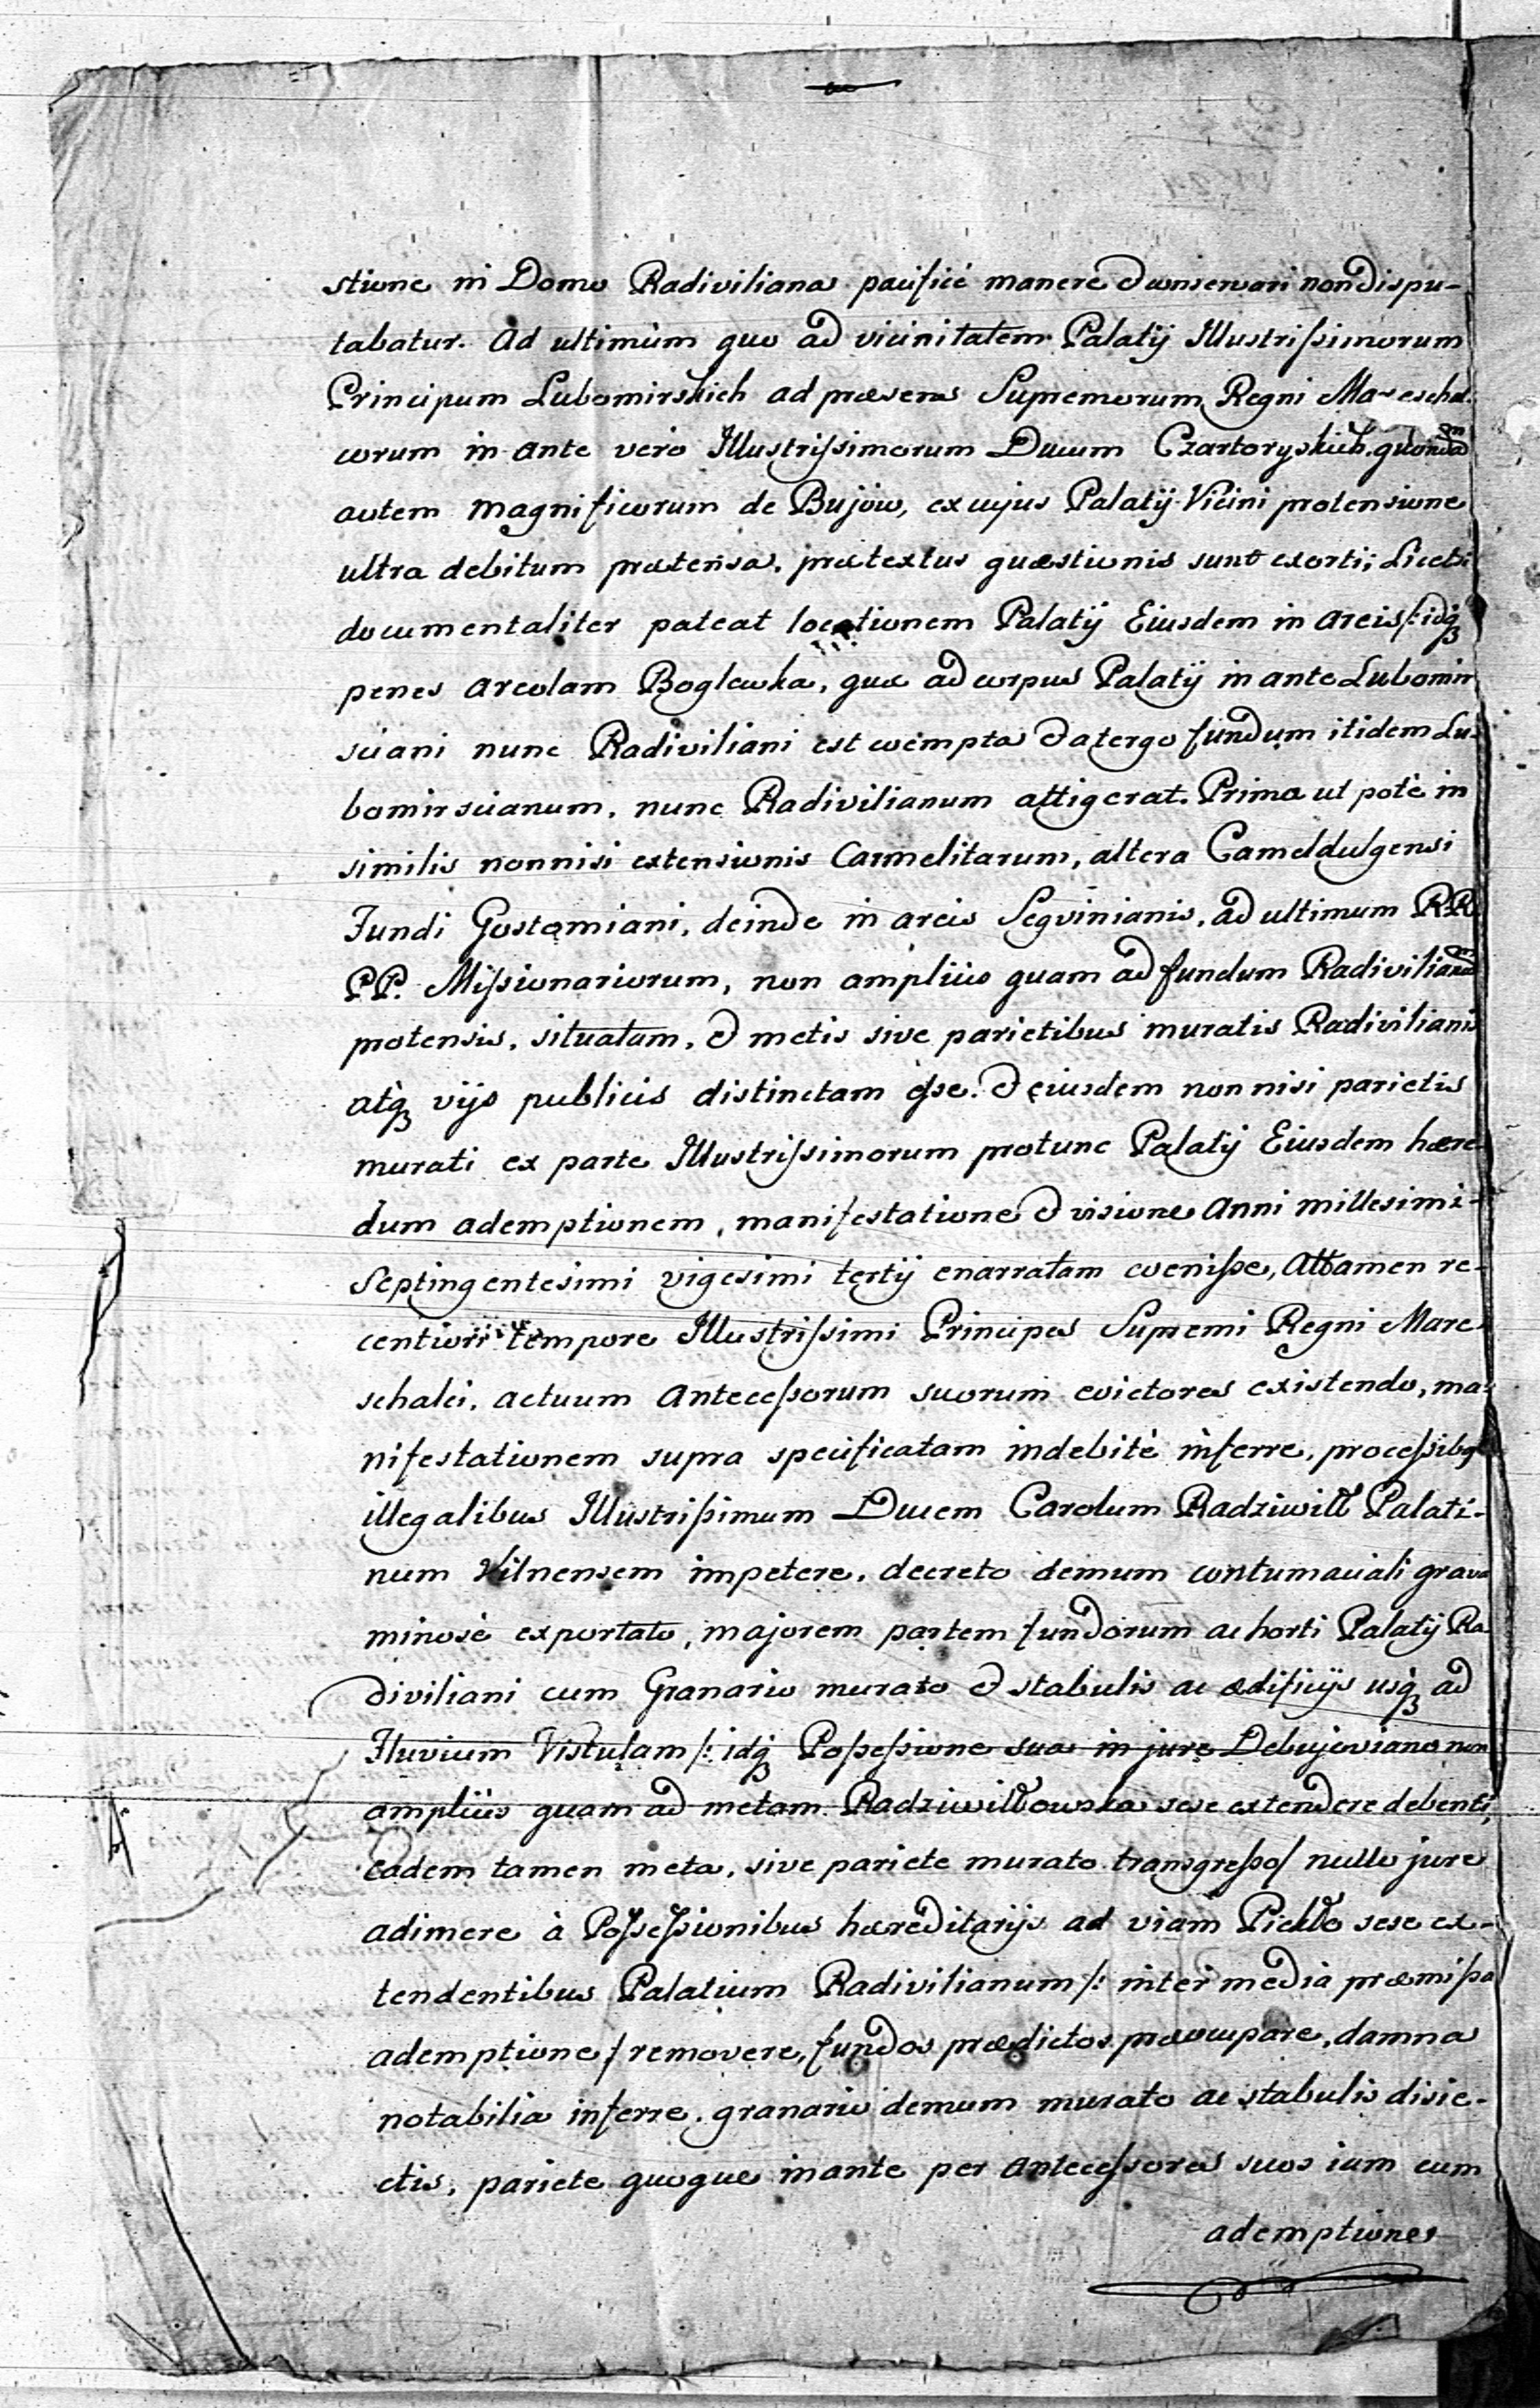 stione in Domo Radiviliana pacificè manere & conservari non dispu-
tabatur. Ad ultimùm quo ad vicinitatem Palatij Illustrißimorum
Principum Lubomirskich ad præsens Supremorum Regni Mareschal-
corum in ante verò Illustrißimorum Ducum Czartoryskich, quondam
autem Magnificorum de Bujów, ex cujus Palatij Vicini protensione
ultra debitum prætensa, prætextus quæstionis sunt exorti; Licet
documentaliter pateat locationem Palatij Eiusdem in areis /: idq
penes areolam Boglewska, quæ ad corpus Palatij in ante Lubomir
sciani nunc Radiviliani est coempta & a tergo fundum itidem Lu-
bomirscianum, nunc Radivilianum attigerat. Prima ut potè in
similis nonnisi extensionis Carmelitarum, altera Cameldulgensi
Fundi Gostomiani, deinde in areis Segvinianis, ad ultimum RR.
PP. Mißionariorum, non ampliùs quam ad fundum Radivilianum
protensis, situatam, & metis sive parietibus muratis Radivilianis
atq vijs publicis distinctam eße. & eiusdem non nisi parietis
murati ex parte Illustrißimorum protunc Palatij Eiusdem hære-
dum ademptionem, manifestatione & visione Anni millesimi-
Septingentesimi vigesimi tertij enarratam evenißе, Attamen re-
centiori tempore Illustrißimi Principes Supremi Regni Mare-
schalci, actuum Anteceßorum suorum evictores existendo, ma-
nifestationem supra specificatam indebitè inferre, proceßibq
illegalibus Illustrißimum Ducem Carolum Radziwiłł Palati-
num Vilnensem impetere, decreto demum contumaciali grava
minosè exportato, majorem partem fundorum ac horti Palatij Ra
diviliani cum Granario murato & stabulis ac ædificijs usq ad
Fluvium Vistulam /: idq Poßeßione sua in jure Debujoviano non
ampliùs quam ad metam Radziwiłłowska sese extendere debenti,
eadem tamen meta, sive pariete murato transgreßo / nullo jure
adimere à Poßeßionibus hæreditarijs ad viam Piekło sese ex-
tendentibus Palatium Radivilianum /: inter media præmißa
ademptione / removere, fundos prædictos præoccupare, damna
notabilia inferre, granario demum murato ac stabulis disie-
ctis, pariete quoque in ante per Anteceßores suos iam cum
ademptiones